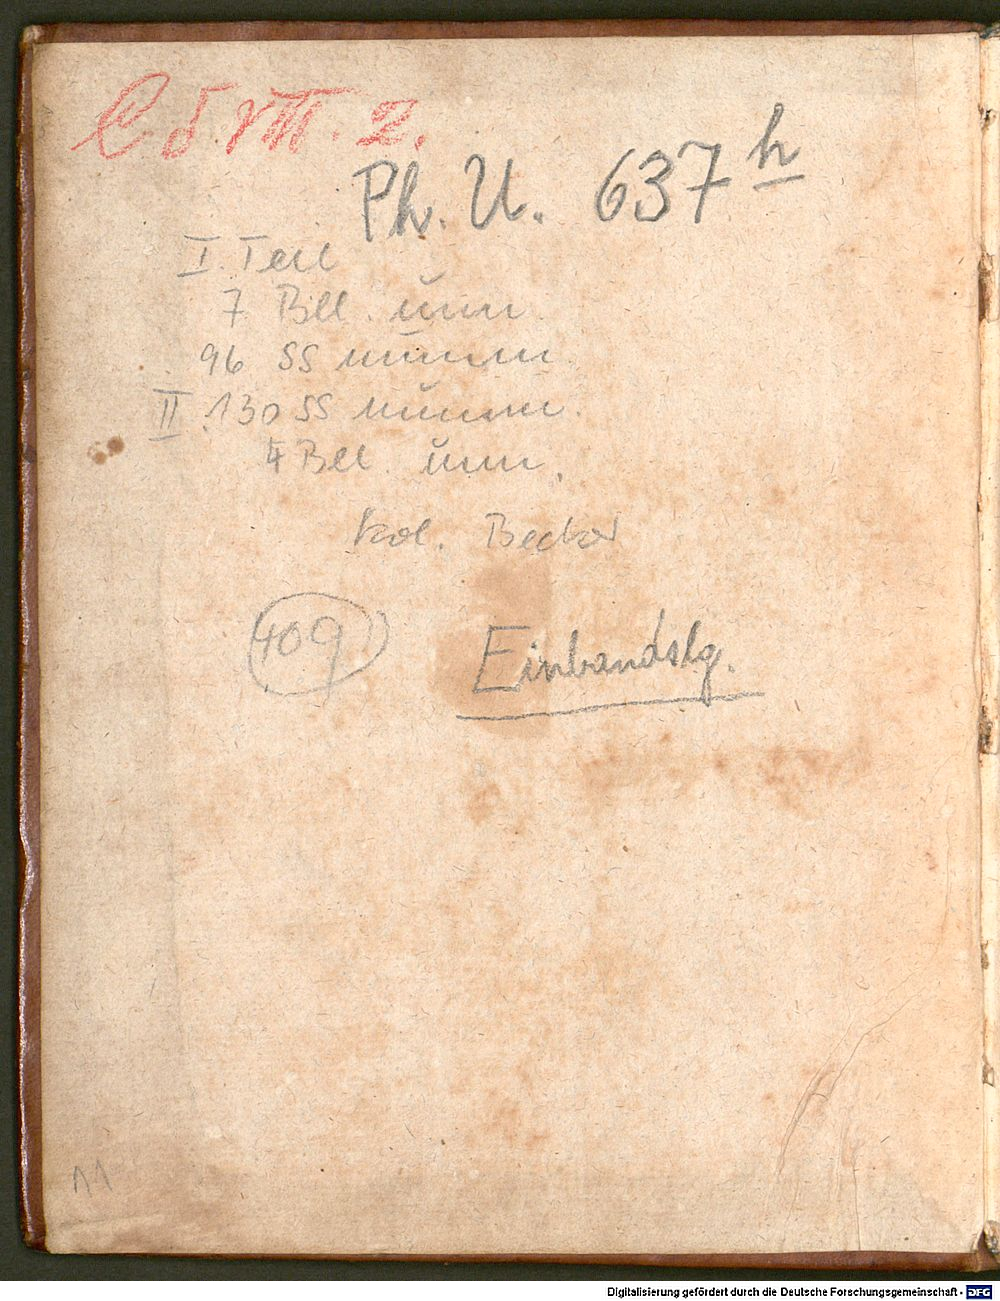 Ph. U. 637 h
I. Teil
7 Bll. unn.
96 SS numm.
II. 130 SS numm.
4 Bll. unn.
kol. Becker
409
Einbandslg.
11
Digitalisierung gefördert durch die Deutsche Forschungsgemeinschaft - DFG